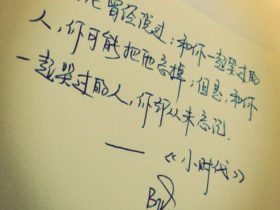 曾经说过：和你一起哭过的
人，你可能把他忘掉；但是，和你
一起哭过的人，你却从未忘记
——《小时代》